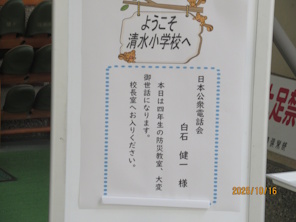 ようこそ
清水小学校へ
日本公衆電話会
白石 健一 様
本日は四年生の防災教室、大変
御世話になります。
校長室へお入りください。
土足禁
2025/10/16